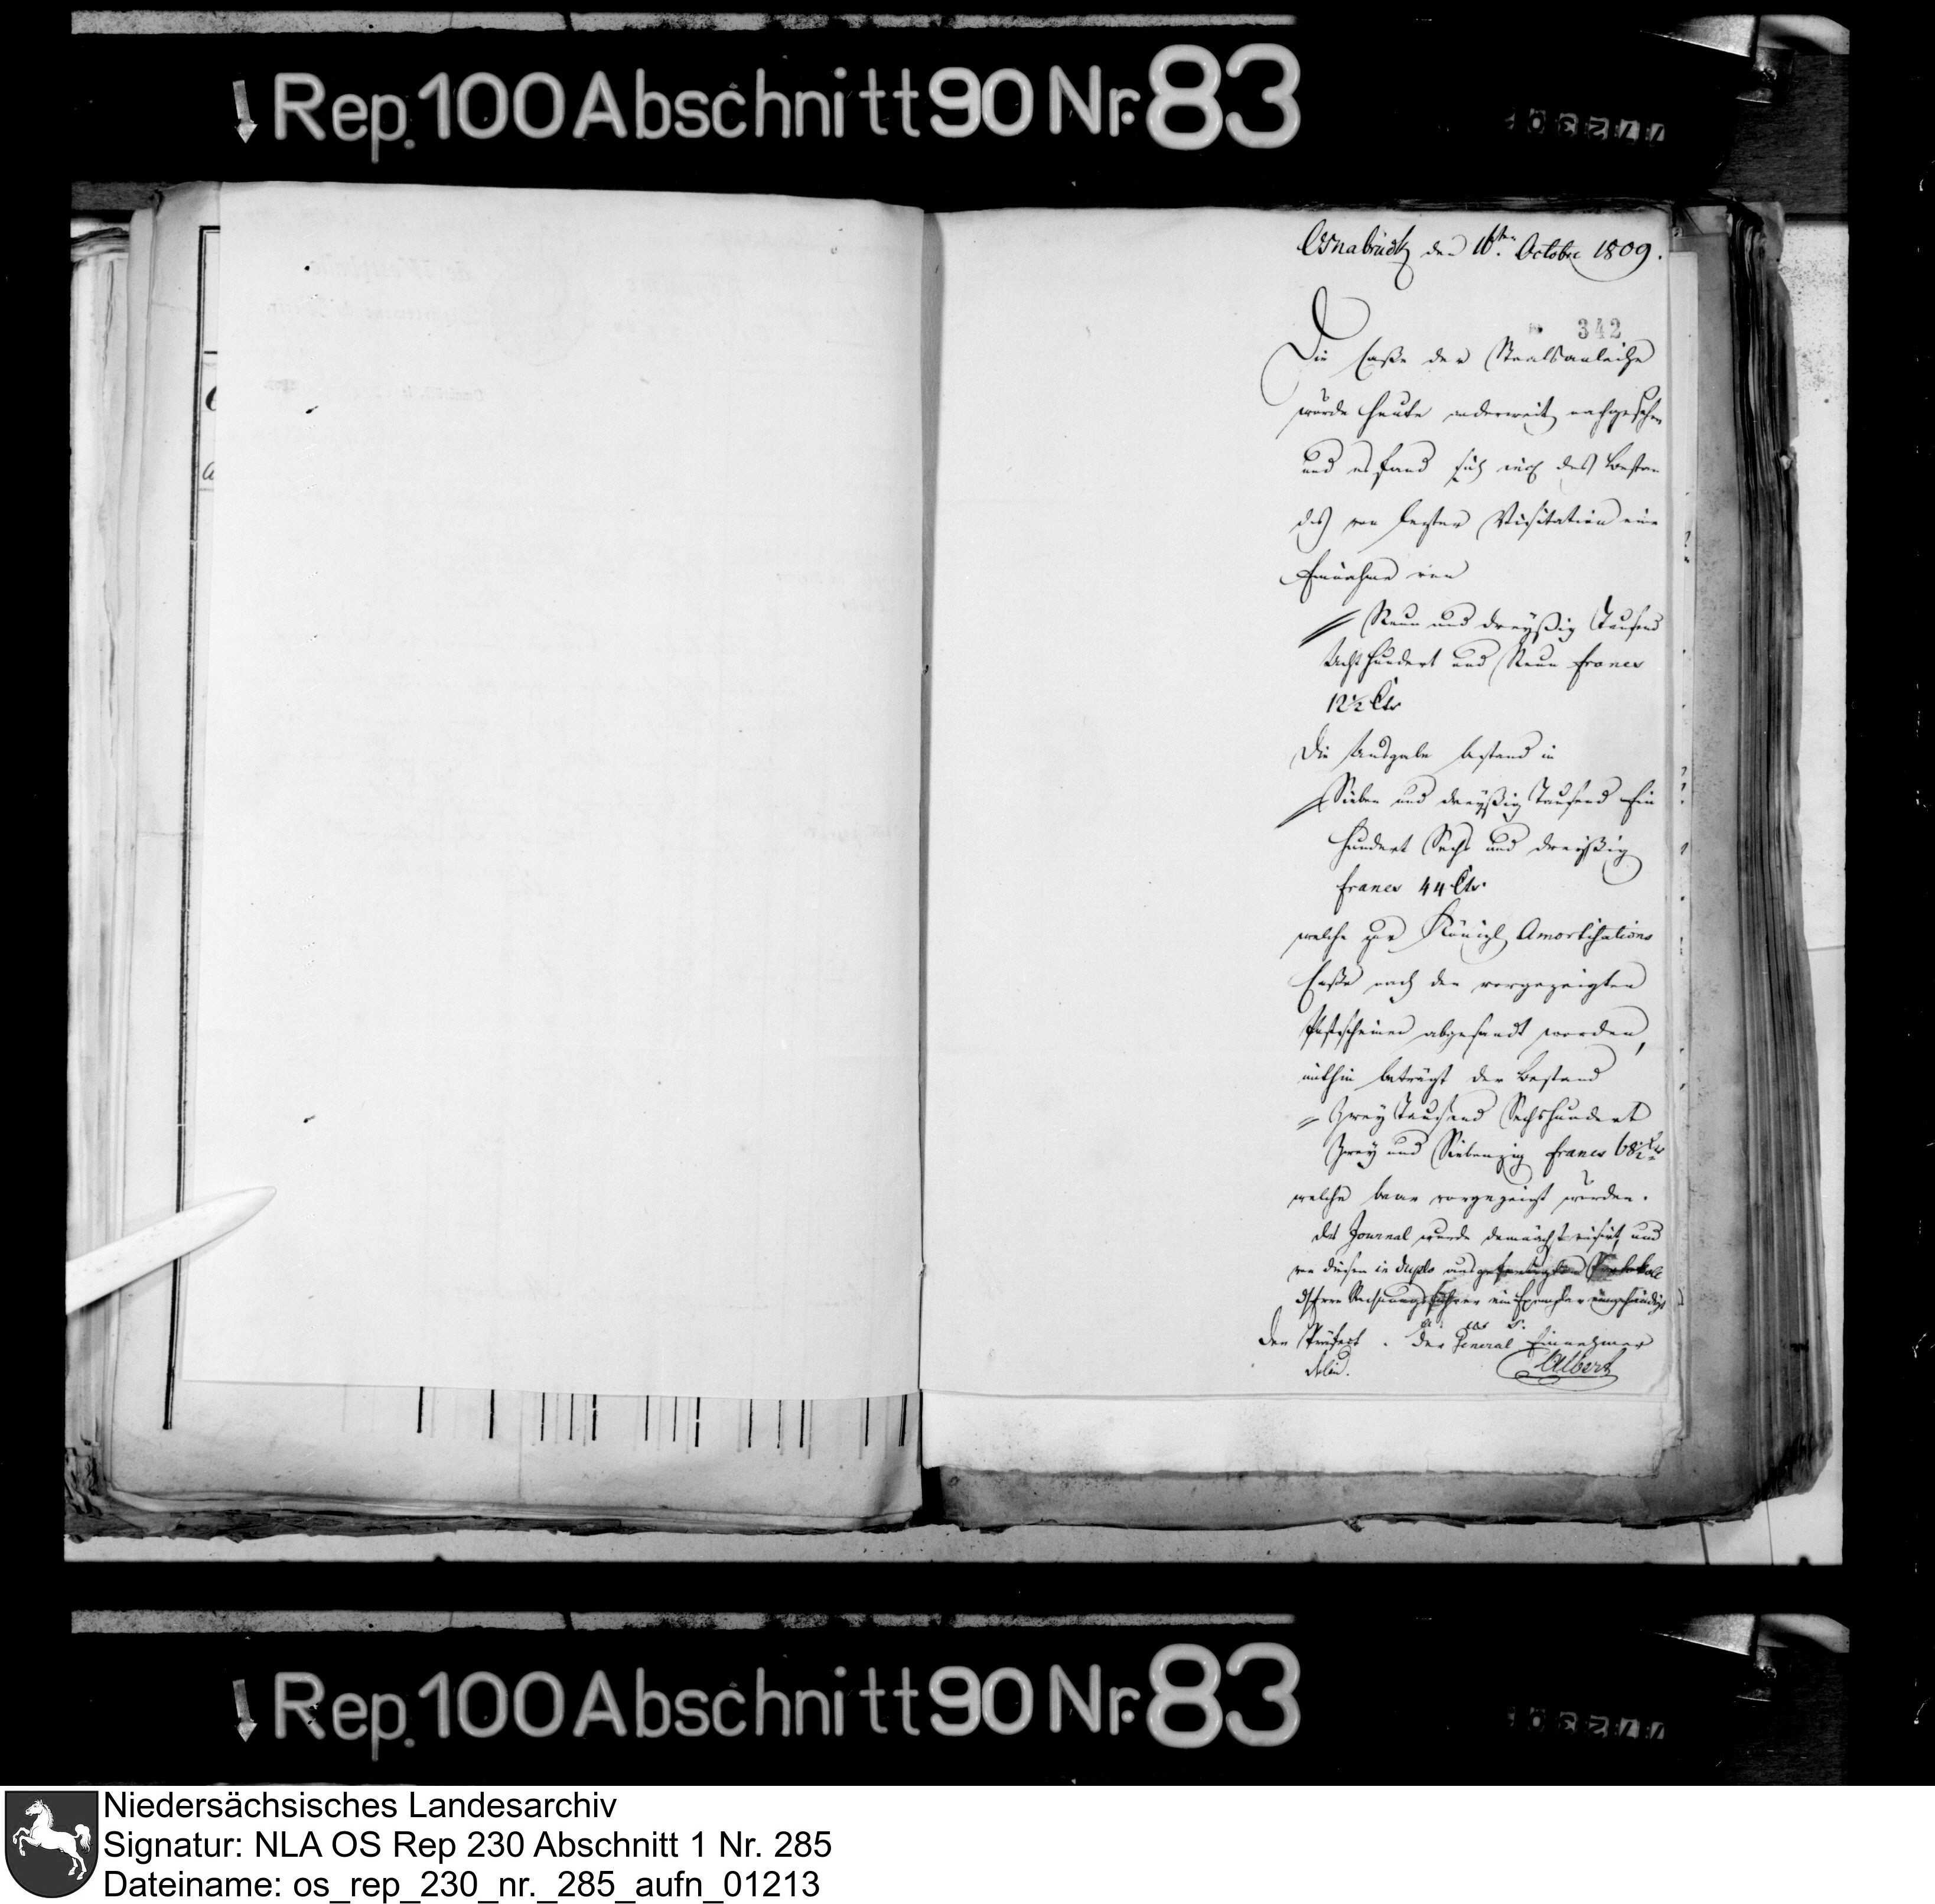 Rep. 100 Abschnitt 90 Nr. 83
Osnabrück den 16ten October 1809.
342
Die Casse der Staatsanleihe
wurde heute anderweit nachgesehen
und es fand sich incl. des Bestan
des von letzter Visitation eine
Einnahme von
Neun und dreyßig Tausend
Acht hundert und Neun francs
12½ Cts
Die Ausgabe bestand in
Sieben und dreyßig Tausend Ein
hundert Sechs und dreyßig
francs 44 Cts.
welche zur Königl. Amortisations
Casse nach den vorgezeigten
Postscheinen abgesandt worden,
mithin beträgt der Bestand
Zwey Tausend Sechshundert
Zwey und Siebenzig francs 68½ Cts
welche baar vorgezeigt wurden.
Das Journal wurde demnächst visirt, und
von diesem in duplo ausgefertigten Protokoll
Rechnungsführer ein Exemplar eingehändigt
Der Präfect. Der General Einnehmer
Albert
Rep. 100 Abschnitt 90 Nr. 83
Niedersächsisches Landesarchiv
Signatur: NLA OS Rep 230 Abschnitt 1 Nr. 285
Dateiname: os_rep_230_nr._285_aufn_01213